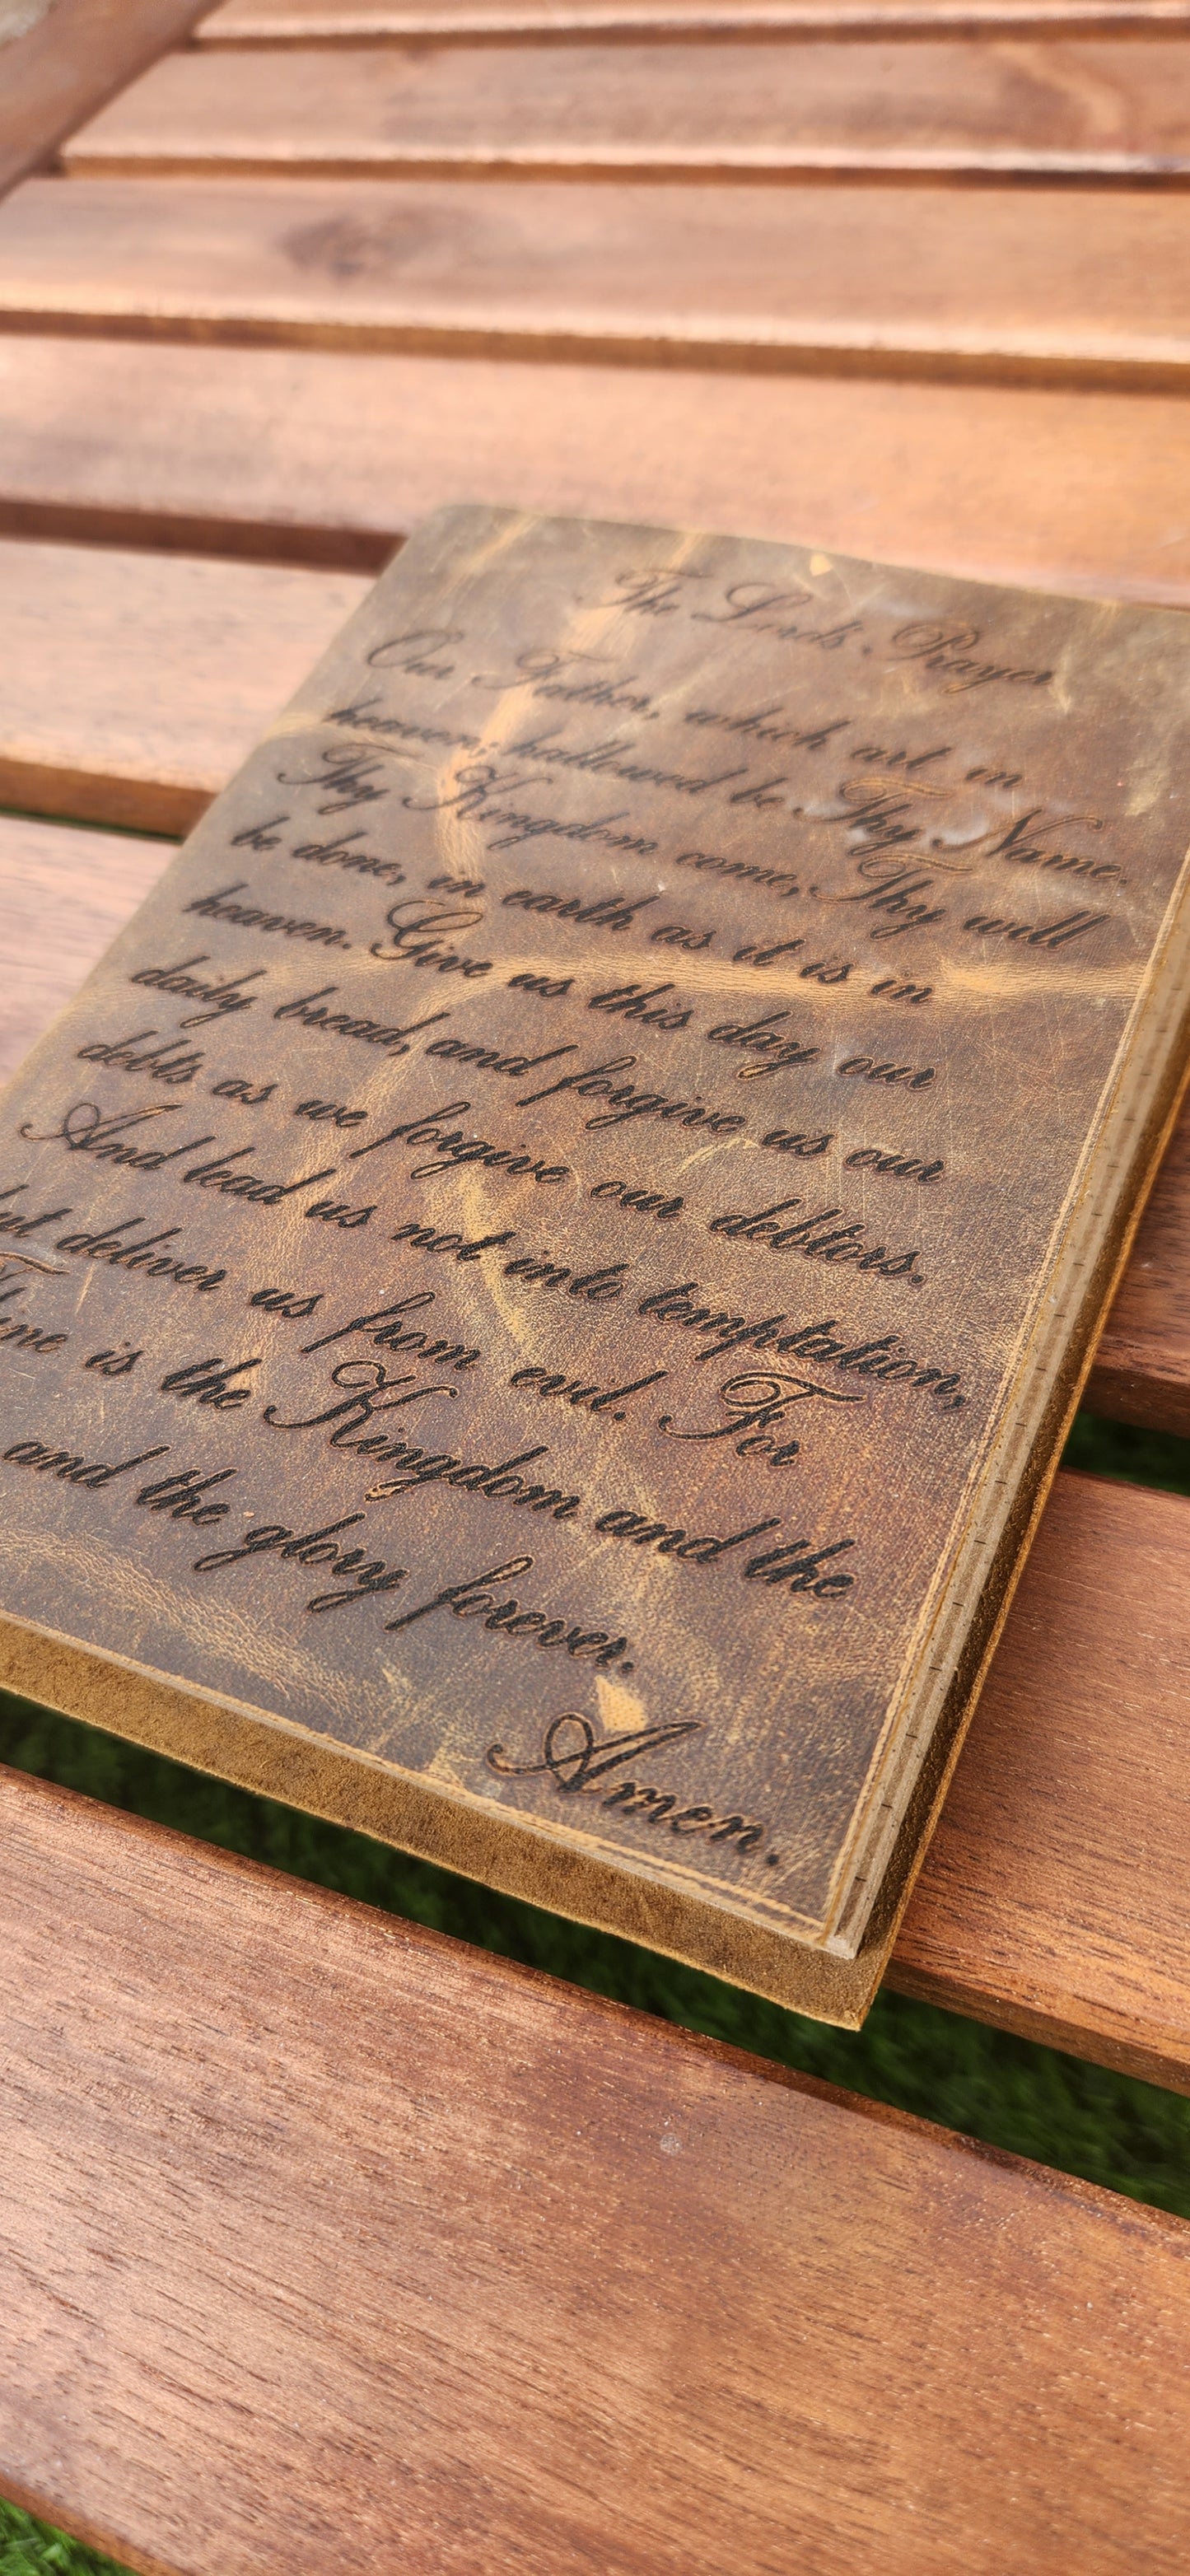 The Lord's Prayer
Our Father, which art in
heaven, hallowed be Thy Name.
Thy Kingdom come, Thy will
be done, in earth as it is in
heaven. Give us this day our
daily bread, and forgive us our
debts as we forgive our debtors.
And lead us not into temptation,
but deliver us from evil. For
Thine is the Kingdom and the
and the glory forever.
Amen.